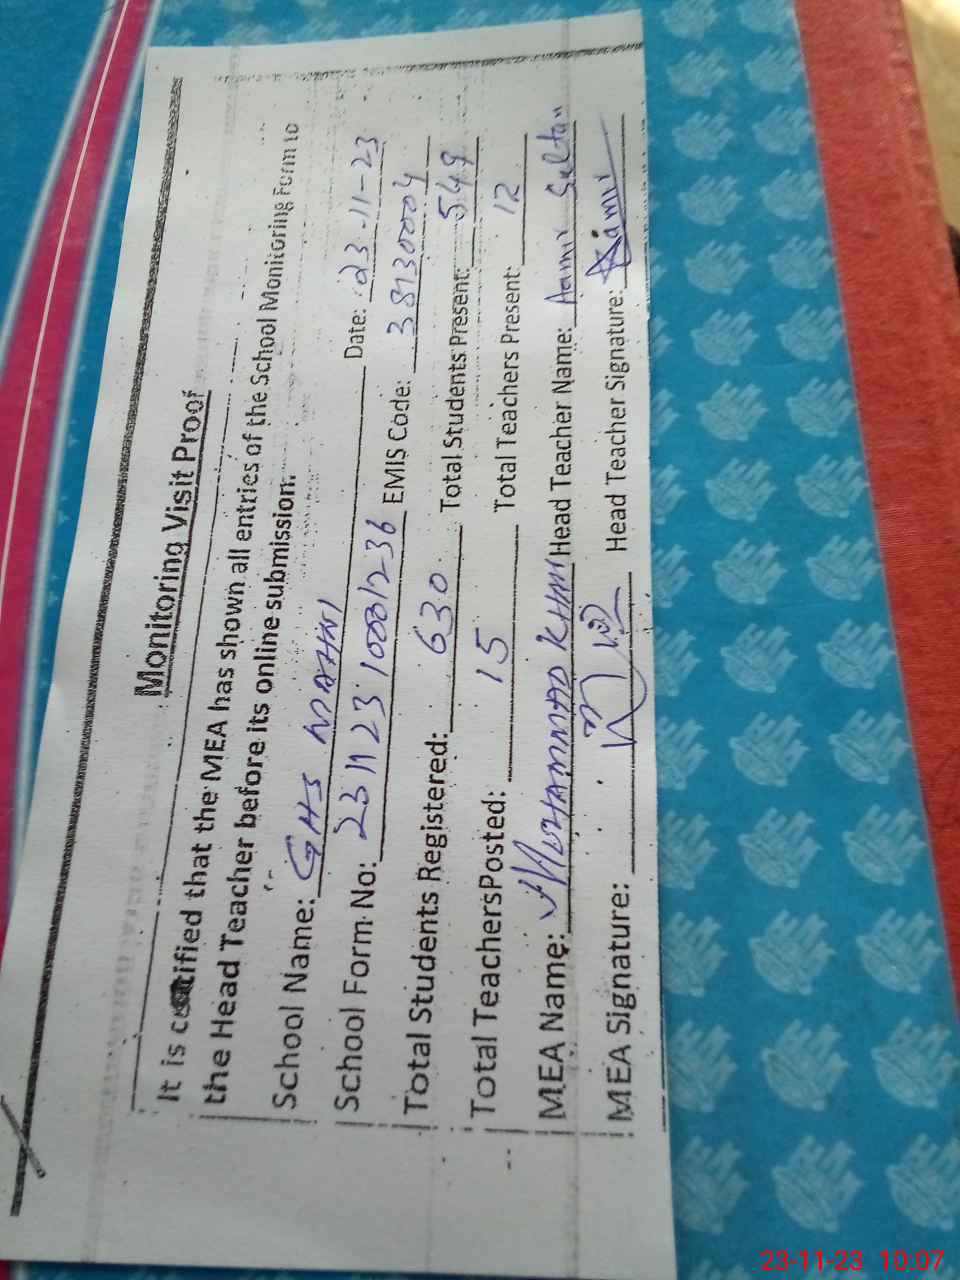 Monitoring Visit Proof
It is certified that the MEA has shown all entries of the School Monitoring Form to
the Head Teacher before its online submission.
School Name: GHS Date: 23-11-23
School Form No: 23112310001236 EMIS Code: 38130004
Total Students Registered: 630 Total Students Present: 549
Total TeachersPosted: 15 Total Teachers Present: 12
MEA Name: MUHAMMAD KHAN Head Teacher Name: Aamir Sultan
MEA Signature: Head Teacher Signature: Aamir
23-11-23 10:07